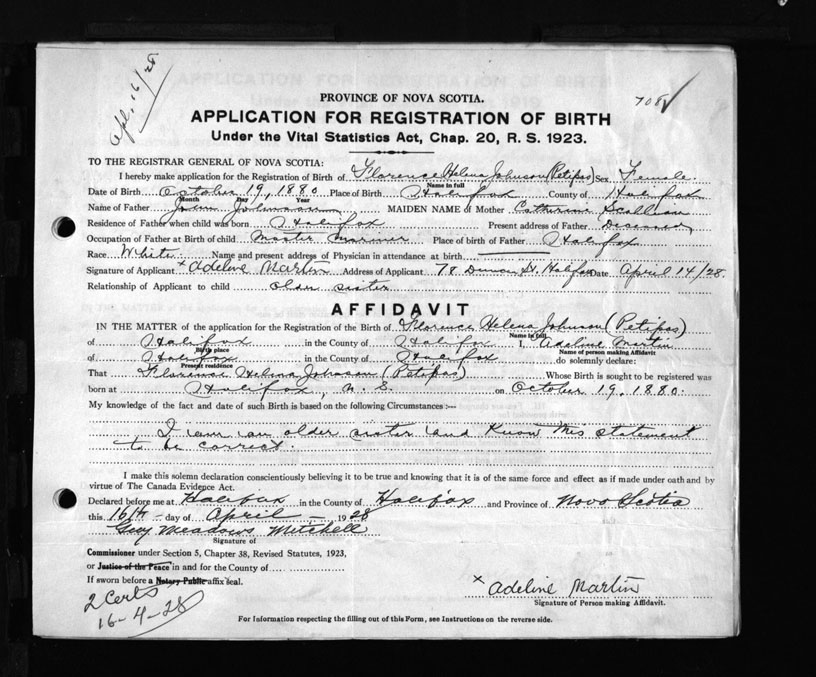 Apl. 16/28
708 ✓
PROVINCE OF NOVA SCOTIA.
APPLICATION FOR REGISTRATION OF BIRTH
Under the Vital Statistics Act, Chap. 20, R. S. 1923.
TO THE REGISTRAR GENERAL OF NOVA SCOTIA:
I hereby make application for the Registration of Birth of Florence Helena Johnson (Petipas) Sex Female.
Name in full
Date of Birth October 19, 1880 Place of Birth Halifax County of Halifax
Month Day Year
Name of Father John Johnson MAIDEN NAME of Mother Catherine
Residence of Father when child was born Halifax Present address of Father Deceased
Occupation of Father at Birth of child Master Mariner Place of birth of Father Halifax
Race White Name and present address of Physician in attendance at birth
Signature of Applicant x Adeline Martin Address of Applicant 78 Duncan St. Halifax Date April 14/28
Relationship of Applicant to child older sister
AFFIDAVIT
IN THE MATTER of the application for the Registration of the Birth of Florence Helena Johnson (Petipas)
Name in full
of Halifax in the County of Halifax I, Adeline Martin
Birth place Name of person making Affidavit
of Halifax in the County of Halifax do solemnly declare:
Present residence
That Florence Helena Johnson (Petipas) Whose Birth is sought to be registered was
born at Halifax, N. S. on October 19, 1880.
My knowledge of the fact and date of such Birth is based on the following Circumstances :—
I am an older sister and know this statement
to be correct.
I make this solemn declaration conscientiously believing it to be true and knowing that it is of the same force and effect as if made under oath and by
virtue of The Canada Evidence Act.
Declared before me at Halifax in the County of Halifax and Province of Nova Scotia
this 16th day of April 1928
Guy Meadows Mitchell
Signature of
Commissioner under Section 5, Chapter 38, Revised Statutes, 1923,
or Justice of the Peace in and for the County of
If sworn before a Notary Public affix seal.
x Adeline Martin
Signature of Person making Affidavit.
2 Certs
16-4-28
For Information respecting the filling out of this Form, see Instructions on the reverse side.